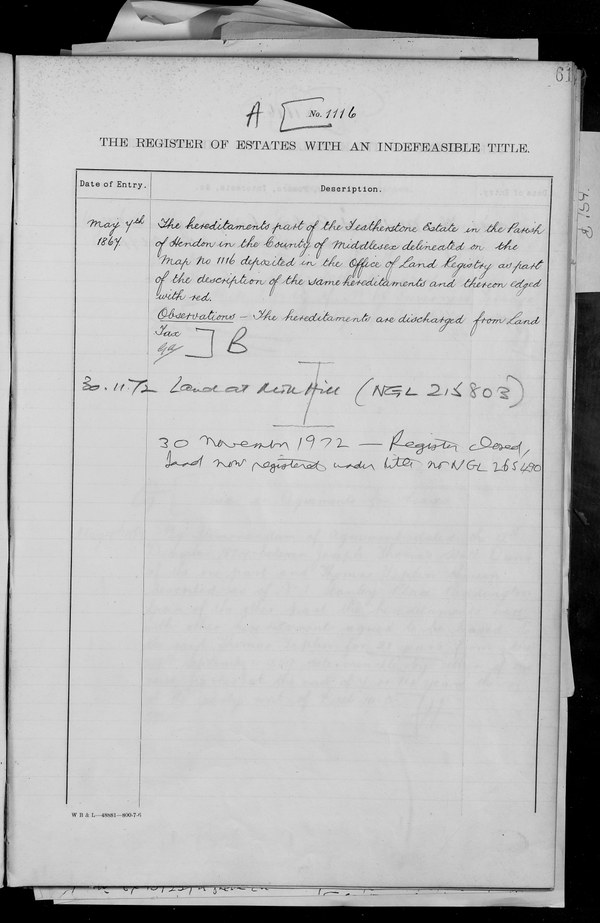 61
A [ No. 1116
THE REGISTER OF ESTATES WITH AN INDEFEASIBLE TITLE.
Date of Entry.
Description.
May 7th
1867
The hereditaments part of the Featherstone Estate in the Parish
of Hendon in the County of Middlesex delineated on the
Map No 1116 deposited in the Office of Land Registry as part
of the description of the same hereditaments and thereon edged
with red.
Observations – The hereditaments are discharged from Land
Tax ] B
30.11.72 Land at Hill (NGL 215803)
30 November 1972 — Register closed,
land now registered under title no NGL 265490
W B & L—48885—800-7-6